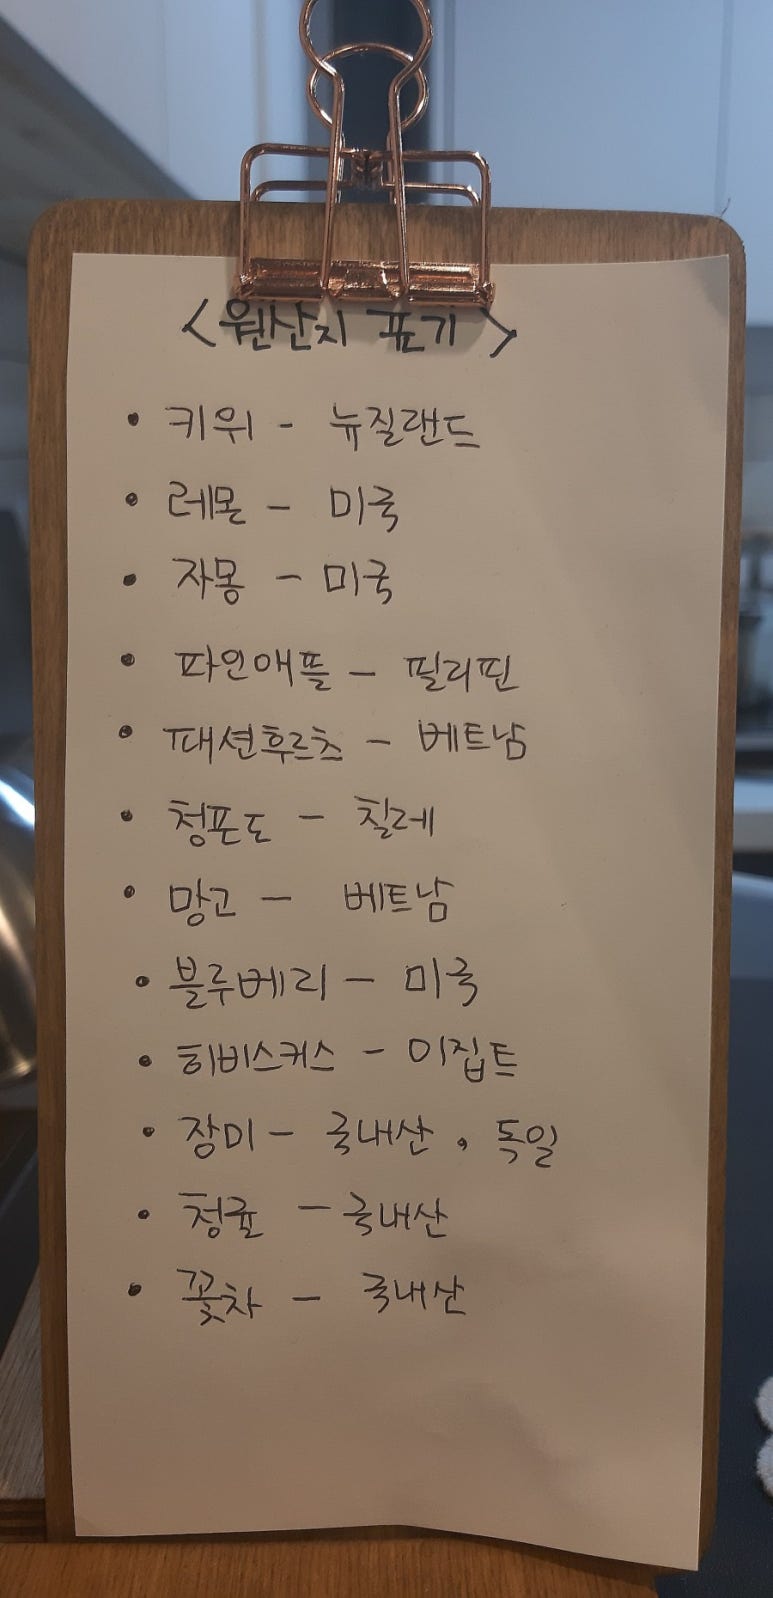 <원산지 표기>
• 키위 - 뉴질랜드
• 레몬 - 미국
• 자몽 - 미국
• 파인애플 - 필리핀
• 패션후르츠 - 베트남
• 청포도 - 칠레
• 망고 - 베트남
• 블루베리 - 미국
• 히비스커스 - 이집트
• 장미 - 국내산, 독일
• 청귤 - 국내산
• 꽃차 - 국내산